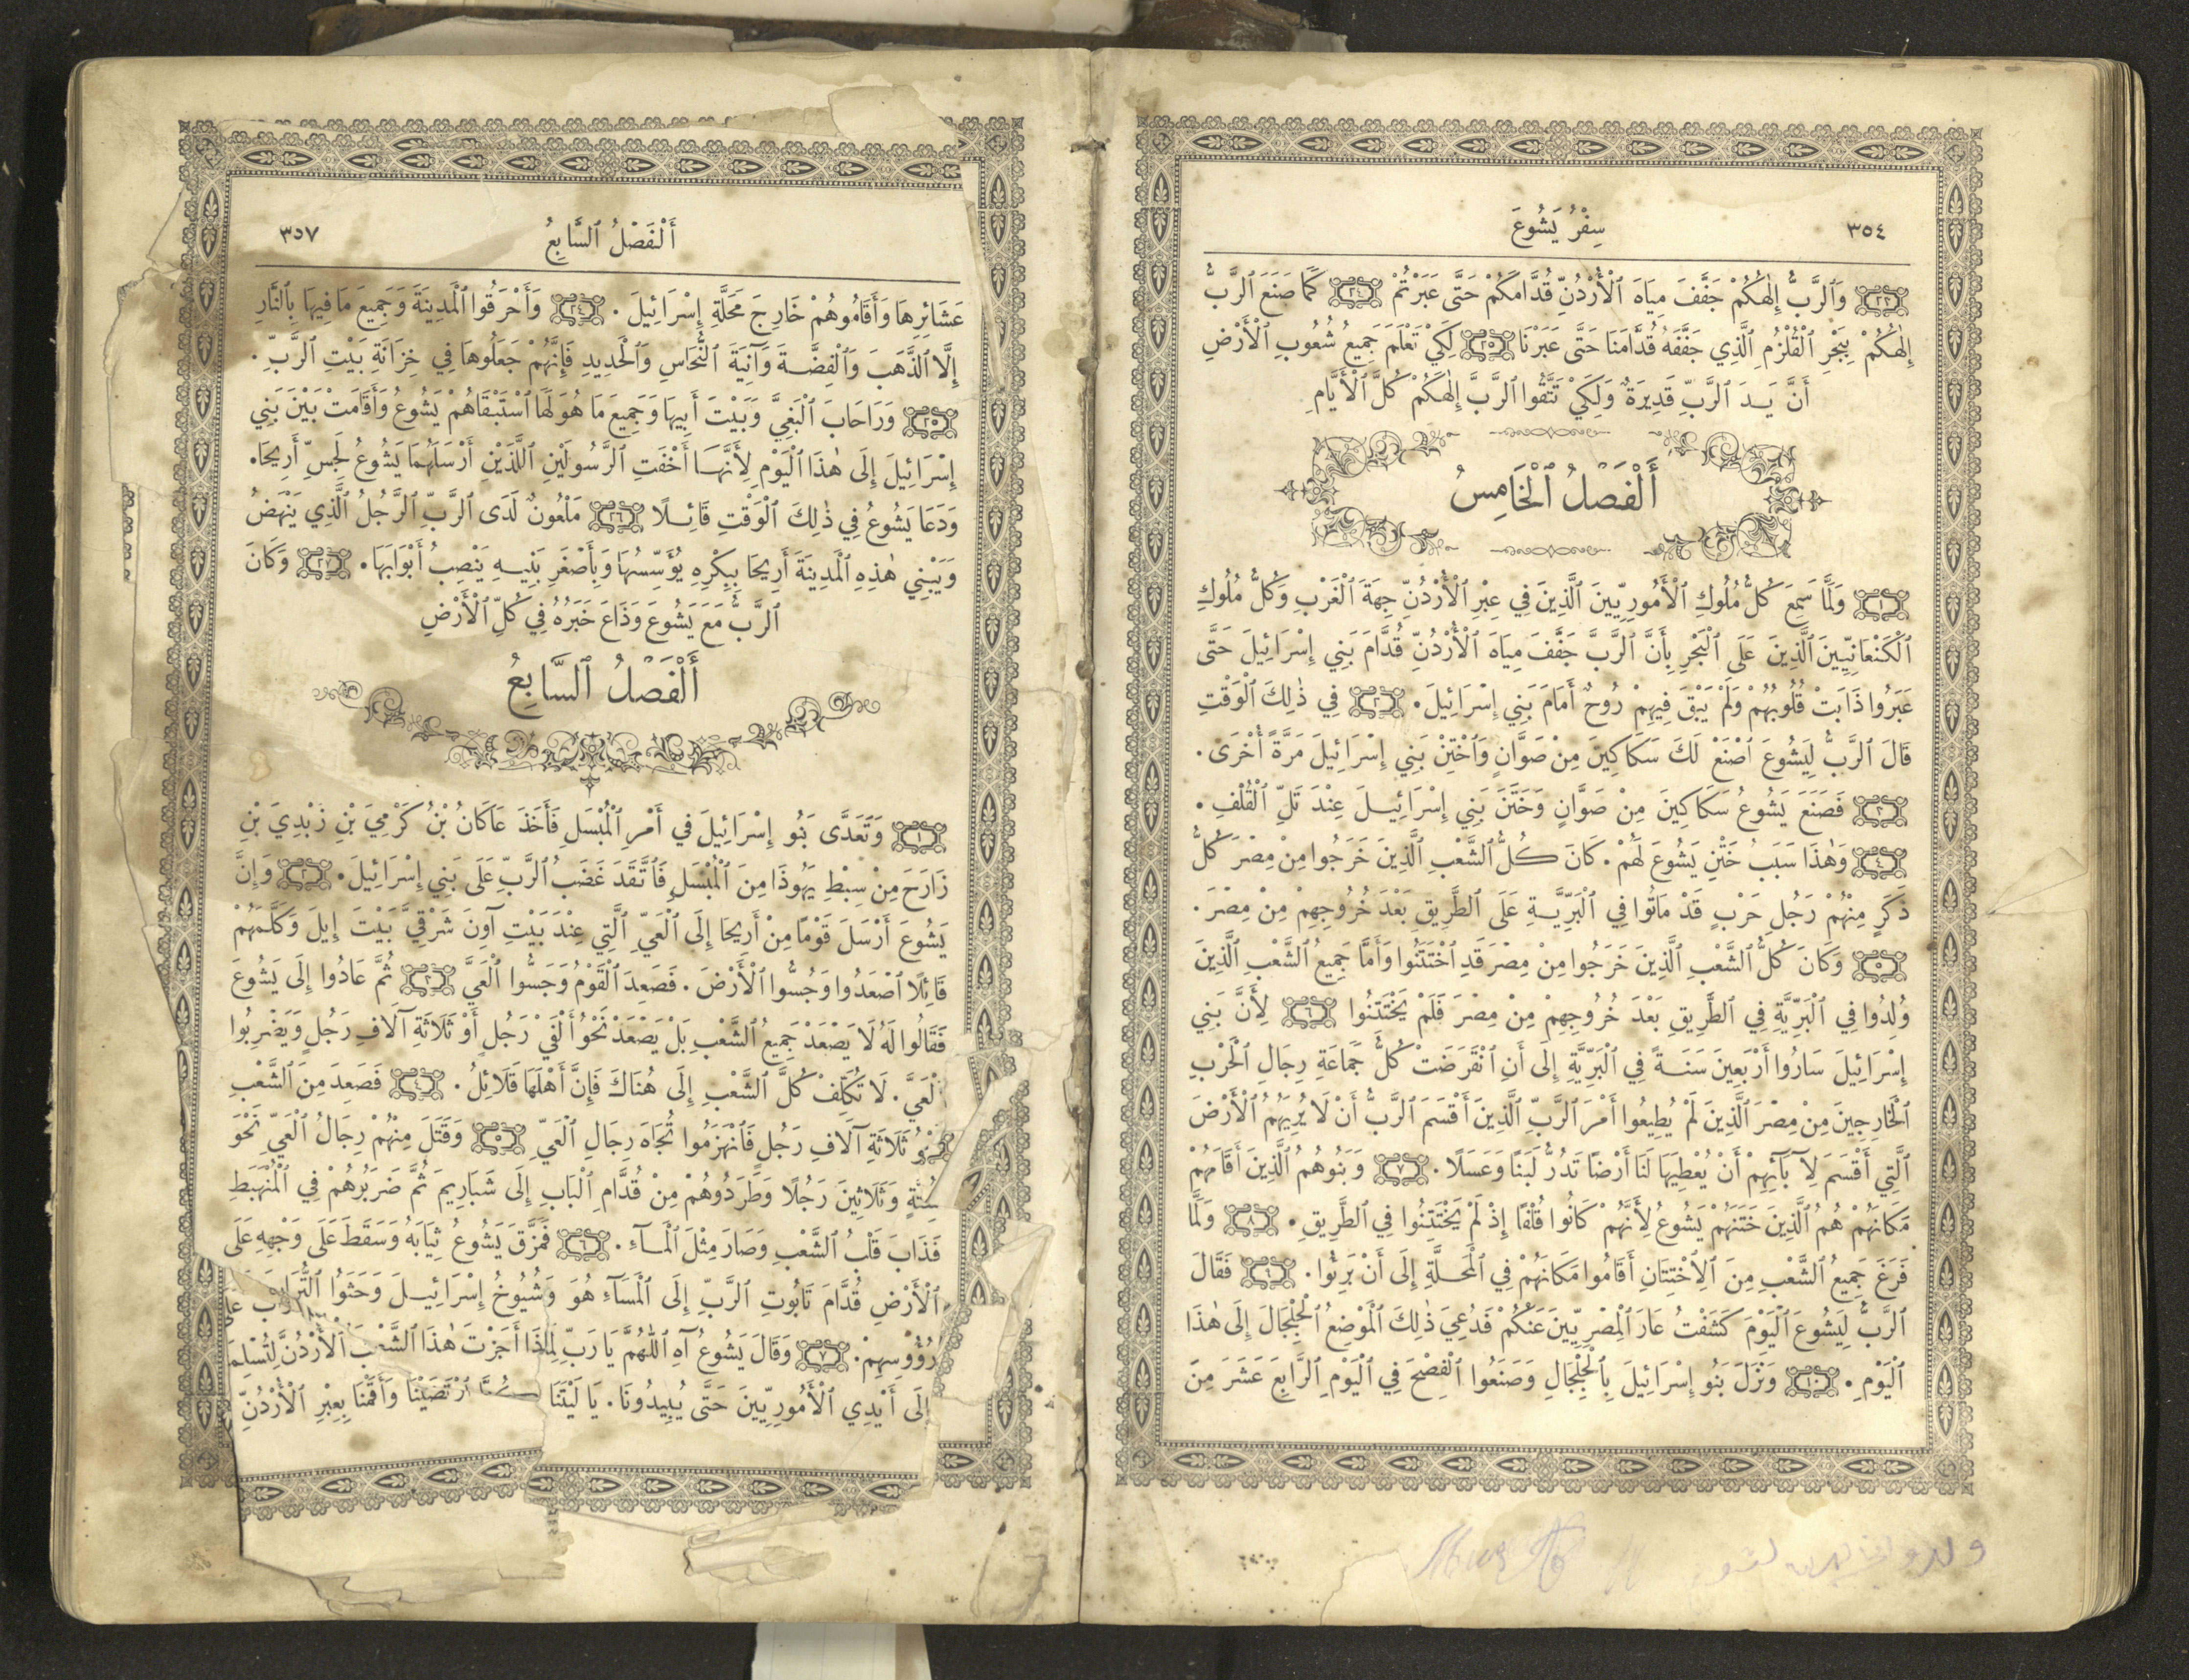 ٣٥٤
سِفْرُ يَشُوعَ
﴿٢٣﴾ وَٱلرَّبُّ إِلٰهُكُمْ جَفَّفَ مِيَاهَ ٱلْأُرْدُنِّ قُدَّامَكُمْ حَتَّى عَبَرْتُمْ ﴿٢٤﴾ كَمَا صَنَعَ ٱلرَّبُّ
إِلٰهُكُمْ بِبَحْرِ ٱلْقُلْزُمِ ٱلَّذِي جَفَّفَهُ قُدَّامَنَا حَتَّى عَبَرْنَا ﴿٢٥﴾ لِكَيْ تَعْلَمَ جَمِيعُ شُعُوبِ ٱلْأَرْضِ
أَنَّ يَدَ ٱلرَّبِّ قَدِيرَةٌ وَلِكَيْ تَتَّقُوا ٱلرَّبَّ إِلٰهَكُمْ كُلَّ ٱلْأَيَّامِ
أَلْفَصْلُ ٱلْخَامِسُ
﴿١﴾ وَلَمَّا سَمِعَ كُلُّ مُلُوكِ ٱلْأَمُورِيِّينَ ٱلَّذِينَ فِي عِبْرِ ٱلْأُرْدُنِّ جِهَةَ ٱلْغَرْبِ وَكُلُّ مُلُوكِ
ٱلْكَنْعَانِيِّينَ ٱلَّذِينَ عَلَى ٱلْبَحْرِ بِأَنَّ ٱلرَّبَّ جَفَّفَ مِيَاهَ ٱلْأُرْدُنِّ قُدَّامَ بَنِي إِسْرَائِيلَ حَتَّى
عَبَرُوا ذَابَتْ قُلُوبُهُمْ وَلَمْ يَبْقَ فِيهِمْ رُوحٌ أَمَامَ بَنِي إِسْرَائِيلَ. ﴿٢﴾ فِي ذٰلِكَ ٱلْوَقْتِ
قَالَ ٱلرَّبُّ لِيَشُوعَ ٱصْنَعْ لَكَ سَكَاكِينَ مِنْ صَوَّانٍ وَٱخْتِنْ بَنِي إِسْرَائِيلَ مَرَّةً أُخْرَى.
﴿٣﴾ فَصَنَعَ يَشُوعُ سَكَاكِينَ مِنْ صَوَّانٍ وَخَتَنَ بَنِي إِسْرَائِيلَ عِنْدَ تَلِّ ٱلْقُلْفِ.
﴿٤﴾ وَهٰذَا سَبَبُ خَتْنِ يَشُوعَ لَهُمْ. كَانَ كُلُّ ٱلشَّعْبِ ٱلَّذِينَ خَرَجُوا مِنْ مِصْرَ كُلُّ
ذَكَرٍ مِنْهُمْ رَجُلِ حَرْبٍ قَدْ مَاتُوا فِي ٱلْبَرِّيَّةِ عَلَى ٱلطَّرِيقِ بَعْدَ خُرُوجِهِمْ مِنْ مِصْرَ.
﴿٥﴾ وَكَانَ كُلُّ ٱلشَّعْبِ ٱلَّذِينَ خَرَجُوا مِنْ مِصْرَ قَدِ ٱخْتَتَنُوا وَأَمَّا جَمِيعُ ٱلشَّعْبِ ٱلَّذِينَ
وُلِدُوا فِي ٱلْبَرِّيَّةِ فِي ٱلطَّرِيقِ بَعْدَ خُرُوجِهِمْ مِنْ مِصْرَ فَلَمْ يَخْتَتِنُوا ﴿٦﴾ لِأَنَّ بَنِي
إِسْرَائِيلَ سَارُوا أَرْبَعِينَ سَنَةً فِي ٱلْبَرِّيَّةِ إِلَى أَنِ ٱنْقَرَضَتْ كُلُّ جَمَاعَةِ رِجَالِ ٱلْحَرْبِ
ٱلْخَارِجِينَ مِنْ مِصْرَ ٱلَّذِينَ لَمْ يُطِيعُوا أَمْرَ ٱلرَّبِّ ٱلَّذِينَ أَقْسَمَ ٱلرَّبُّ أَنْ لَا يُرِيَهُمُ ٱلْأَرْضَ
ٱلَّتِي أَقْسَمَ لِآبَآئِهِمْ أَنْ يُعْطِيَهَا لَنَا أَرْضًا تَدُرُّ لَبَنًا وَعَسَلًا. ﴿٧﴾ وَبَنُوهُمُ ٱلَّذِينَ أَقَامَهُمْ
مَكَانَهُمْ هُمُ ٱلَّذِينَ خَتَنَهُمْ يَشُوعُ لِأَنَّهُمْ كَانُوا قُلْفًا إِذْ لَمْ يَخْتَتِنُوا فِي ٱلطَّرِيقِ. ﴿٨﴾ وَلَمَّا
فَرَغَ جَمِيعُ ٱلشَّعْبِ مِنَ ٱلِٱخْتِتَانِ أَقَامُوا مَكَانَهُمْ فِي ٱلْمَحَلَّةِ إِلَى أَنْ بَرِئُوا. ﴿٩﴾ فَقَالَ
ٱلرَّبُّ لِيَشُوعَ ٱلْيَوْمَ كَشَفْتُ عَارَ ٱلْمِصْرِيِّينَ عَنْكُمْ فَدُعِيَ ذٰلِكَ ٱلْمَوْضِعُ ٱلْجِلْجَالَ إِلَى هٰذَا
ٱلْيَوْمِ. ﴿١٠﴾ وَنَزَلَ بَنُو إِسْرَائِيلَ بِٱلْجِلْجَالِ وَصَنَعُوا ٱلْفِصْحَ فِي ٱلْيَوْمِ ٱلرَّابِعَ عَشَرَ مِنَ
أَلْفَصْلُ ٱلسَّابِعُ
٣٥٧
عَشَائِرِهَا وَأَقَامُوهُمْ خَارِجَ مَحَلَّةِ إِسْرَائِيلَ. ﴿٢٤﴾ وَأَحْرَقُوا ٱلْمَدِينَةَ وَجَمِيعَ مَا فِيهَا بِٱلنَّارِ
إِلَّا ٱلذَّهَبَ وَٱلْفِضَّةَ وَآنِيَةَ ٱلنُّحَاسِ وَٱلْحَدِيدِ فَإِنَّهُمْ جَعَلُوهَا فِي خِزَانَةِ بَيْتِ ٱلرَّبِّ.
﴿٢٥﴾ وَرَاحَابَ ٱلْبَغِيَّ وَبَيْتَ أَبِيهَا وَجَمِيعَ مَا هُوَ لَهَا ٱسْتَبْقَاهُمْ يَشُوعُ وَأَقَامَتْ بَيْنَ بَنِي
إِسْرَائِيلَ إِلَى هٰذَا ٱلْيَوْمِ لِأَنَّهَا أَخْفَتِ ٱلرَّسُولَيْنِ ٱللَّذَيْنِ أَرْسَلَهُمَا يَشُوعُ لِجَسِّ أَرِيحَا.
وَدَعَا يَشُوعُ فِي ذٰلِكَ ٱلْوَقْتِ قَائِلًا ﴿٢٦﴾ مَلْعُونٌ لَدَى ٱلرَّبِّ ٱلرَّجُلُ ٱلَّذِي يَنْهَضُ
وَيَبْنِي هٰذِهِ ٱلْمَدِينَةَ أَرِيحَا بِبِكْرِهِ يُؤَسِّسُهَا وَبِأَصْغَرِ بَنِيهِ يَنْصِبُ أَبْوَابَهَا. ﴿٢٧﴾ وَكَانَ
ٱلرَّبُّ مَعَ يَشُوعَ وَذَاعَ خَبَرُهُ فِي كُلِّ ٱلْأَرْضِ
أَلْفَصْلُ ٱلسَّابِعُ
﴿١﴾ وَتَعَدَّى بَنُو إِسْرَائِيلَ فِي أَمْرِ ٱلْمُبْسَلِ فَأَخَذَ عَاكَانُ بْنُ كَرْمِيَ بْنِ زَبْدِيَ بْنِ
زَارَحَ مِنْ سِبْطِ يَهُوذَا مِنَ ٱلْمُبْسَلِ فَٱتَّقَدَ غَضَبُ ٱلرَّبِّ عَلَى بَنِي إِسْرَائِيلَ. ﴿٢﴾ وَإِنَّ
يَشُوعَ أَرْسَلَ قَوْمًا مِنْ أَرِيحَا إِلَى ٱلْعَيِّ ٱلَّتِي عِنْدَ بَيْتِ آوِنَ شَرْقِيَّ بَيْتَ إِيلَ وَكَلَّمَهُمْ
قَائِلًا ٱصْعَدُوا وَجُسُّوا ٱلْأَرْضَ. فَصَعِدَ ٱلْقَوْمُ وَجَسُّوا ٱلْعَيَّ ﴿٣﴾ ثُمَّ عَادُوا إِلَى يَشُوعَ
فَقَالُوا لَهُ لَا يَصْعَدْ جَمِيعُ ٱلشَّعْبِ بَلْ يَصْعَدْ نَحْوُ أَلْفَيْ رَجُلٍ أَوْ ثَلَاثَةِ آلَافِ رَجُلٍ وَيَضْرِبُوا
ٱلْعَيَّ. لَا تُكَلِّفْ كُلَّ ٱلشَّعْبِ إِلَى هُنَاكَ فَإِنَّ أَهْلَهَا قَلَائِلُ. ﴿٤﴾ فَصَعِدَ مِنَ ٱلشَّعْبِ
نَحْوُ ثَلَاثَةِ آلَافِ رَجُلٍ فَٱنْهَزَمُوا تُجَاهَ رِجَالِ ٱلْعَيِّ ﴿٥﴾ وَقَتَلَ مِنْهُمْ رِجَالُ ٱلْعَيِّ نَحْوَ
سِتَّةٍ وَثَلَاثِينَ رَجُلًا وَطَرَدُوهُمْ مِنْ قُدَّامِ ٱلْبَابِ إِلَى شَبَارِيمَ ثُمَّ ضَرَبُوهُمْ فِي ٱلْمُنْهَبَطِ
فَذَابَ قَلْبُ ٱلشَّعْبِ وَصَارَ مِثْلَ ٱلْمَآءِ. ﴿٦﴾ فَمَزَّقَ يَشُوعُ ثِيَابَهُ وَسَقَطَ عَلَى وَجْهِهِ عَلَى
ٱلْأَرْضِ قُدَّامَ تَابُوتِ ٱلرَّبِّ إِلَى ٱلْمَسَآءِ هُوَ وَشُيُوخُ إِسْرَائِيلَ وَحَثَوُا ٱلتُّرَابَ عَلَى
رُؤُوسِهِمْ. ﴿٧﴾ وَقَالَ يَشُوعُ آهِ ٱللّٰهُمَّ يَا رَبِّ لِمَاذَا أَجَزْتَ هٰذَا ٱلشَّعْبَ ٱلْأُرْدُنَّ لِتُسْلِمَنَا
إِلَى أَيْدِي ٱلْأَمُورِيِّينَ حَتَّى يُبِيدُونَا. يَا لَيْتَنَا كُنَّا ٱرْتَضَيْنَا وَأَقَمْنَا بِعِبْرِ ٱلْأُرْدُنِّ